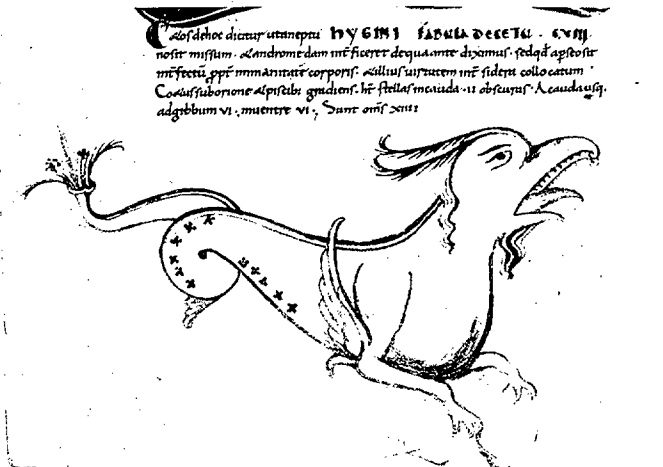 de hoc dicitur ut a neptu HYGINI FABULA DE CETU .
no sit missum . andromedam int̄ficeret de qua ante diximus . sed qd̄ a
int̄fectū ꝓpt̄ inmanitatē corporis . & illius virtutem int̄ sidera collocatum .
suborione alpiscibꝰ gradiens . ht̄ stellas incauda . II obscuras . A cauda usq.
ad gibbum VI . inventre VI . Sunt om̄s XIIII